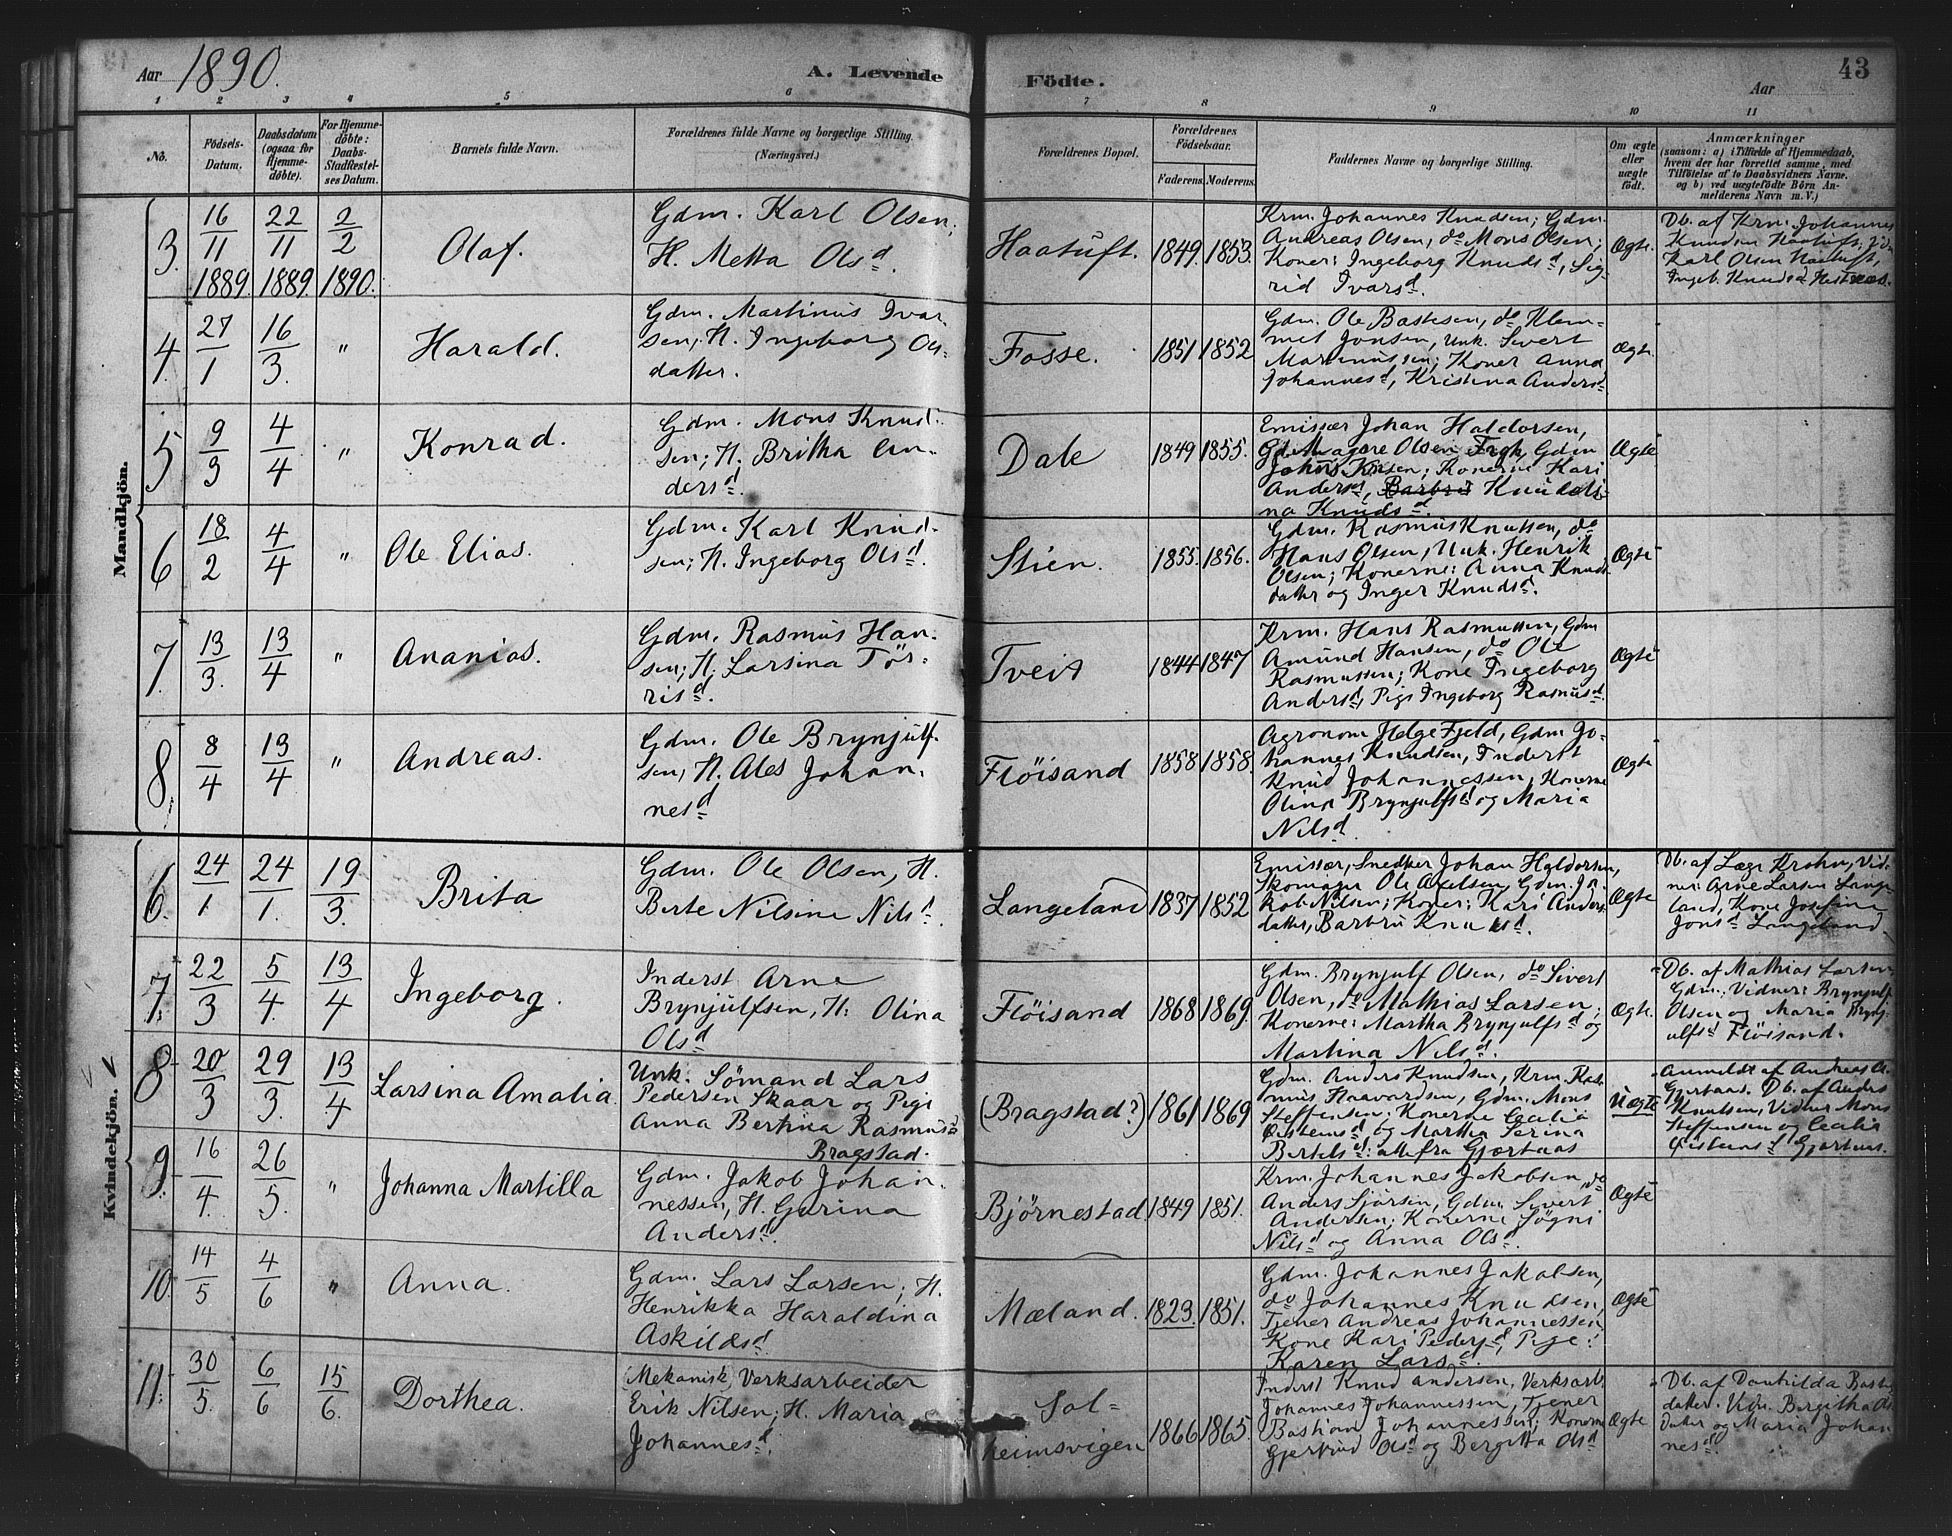 Aar 1890. A. Levende Födte. Aar 43
1 2 3 4 5 6 7 8 9 10 11
No.
Födsels-
Datum.
Daabsdatum
(ogsaa for
Hjemme-
döbte).
For Hjemme-
döbte:
Daabs-
Stadfæstel-
ses Datum.
Barnets fulde Navn.
Forældrenes fulde Navne og borgerlige Stilling.
(Næringsvei.)
Forældrenes Bopæl.
Forældrenes
Födselsaar.
Faderens. Moderens.
Faddernes Navne og borgerlige Stilling.
Om ægte
eller
uægte
födt.
Anmærkninger
(saasom: a) i Tilfælde af Hjemmedaab,
hvem der har forrettet samme, med
Tilföielse af to Daabsvidners Navne.
og b) ved uægtefödte Börn An-
melderens Navn m. V.)
Mandkjön.
3. 16/11 1889. 22/11 1889 2/2 1890.
Olaf.
Gdm. Karl Olsen;
H. Metta Olsd.
Haatuft. 1849. 1853.
Krm. Johannes Knudsen; Gdm.
Andreas Olsen, do Mons Olsen;
Koner: Ingeborg Knudsd, Sig-
rid Ivarsd.
Ægte.
Db. af Krm. Johannes
Knudsen Haatuft;
Karl Olsen Haatuft,
Ingeb. Knudsd
4. 27/1 16/3. "
Harald.
Gdm. Martinus Ivar-
sen, H. Ingeborg Ols-
datter.
Fosse. 1851 1852
Gdm. Ole Bastesen, do Klem-
met Jonsen, Unk. Sivert
Martinussen; Koner Anna
Johannesd, Kristina Andersd
Ægte.
5 9/3 4/4 "
Konrad.
Gdm. Mons Knud-
sen; H. Britha An-
dersd.
Dale 1849 1855.
Emissær Johan Haldorsen,
Olsen Gdm
Konerne Kari
Andersd, Barbru Knudsd
na Knudsd.
Ægte
6 18/2 4/4 "
Ole Elias.
Gdm. Karl Knud-
sen; H. Ingeborg Olsd.
Stien. 1855. 1856.
Gdm. Rasmus Knutsen, do
Hans Olsen, Unk. Henrik
Olsen; Konerne: Anna Knuds-
datter og Inger Knudsd.
Ægte
7. 13/3. 13/4 "
Ananias.
Gdm. Rasmus Han-
sen; H. Larsina Tör-
risd.
Tveit 1844 1847
Krm. Hans Rasmussen, Gdm
Amund Hansen, do Ole
Rasmussen; Kone Ingeborg
Andersd, Pige Ingeborg Rasmusd.
Ægte
8 8/4 13/4 "
Andreas.
Gdm. Ole Brynjulf-
sen, H. Ales Johan-
nesd
Flöisand 1858 1858.
Agronom Helge Fjeld, Gdm Jo-
hannes Knudsen, Inderst
Knud Johannessen; Konerne
Olina Brynjulfsd og Maria
Nilsd.
Ægte
Kvindekjön.
6. 24/1 24/1. 19/3.
Brita
Gdm. Ole Olsen, H.
Berte Nilsine Nilsd.
Langeland 1837 1852
Emissær, Snedker Johan Haldorsen,
Skomager Ole Axelsen, Gdm. Ja-
kob Nilsen; Koner: Kari Anders-
datter, Barbru Knudsd.
Ægte
Db. af Læge Krohn, Vid-
ner: Arne Larsen Lange-
land, Kone Josefine
Jonsd Langeland.
7. 22/3 5/4. 13/4
Ingeborg.
Inderst Arne
Brynjulfsen, H: Olina
Olsd
Flöisand 1868 1869.
Gdm. Brynjulf Olsen, do Sivert
Olsen, do Mathias Larsen;
Konerne: Martha Brynjulfsd og
Martina Nilsd.
Ægte.
Db. af Mathias Larsen
Gdm. Vidner: Brynjulf
Olsen og Maria Brynj-
ulfsd Flöisand.
8 20/3 29/3. 13/4
Larsina Amalia.
Unk. Sömand Lars
Pedersen Skaar og Pige
Anna Bertina Rasmusd
Bragstad.
(Bragstad?) 1861 1869
Gdm. Anders Knudsen, Krm. Ras-
mus Haavardsen, Gdm. Mons
Steffensen; Konerne Cecilia
Öisteinsd og Martha Serina
Bertelsd: alle fra Gjertaas
Uægte
Anmeldt af Andreas A.
Gjertaas. Db. af Anders
Knutsen, Vidner Mons
Steffensen og Cecilia
Öisteinsd Gjertaas.
9. 16/4. 26/5. "
Johanna Martilla
Gdm. Jakob Johan-
nessen, H. Gurina
Andersd.
Björnestad 1849 1851.
Krm. Johannes Jakobsen, do
Anders Sjursen, Gdm. Sivert
Andersen; Konerne Sögni
Nilsd og Anna Olsd.
Ægte
10. 14/5 4/6 "
Anna.
Gdm. Lars Larsen; H.
Henrikka Haraldina
Askildsd.
Mæland. 1823. 1851.
Gdm. Johannes Jakobsen,
do Johannes Knudsen,
Tjener Andreas Johannessen,
Kone Kari Pedersd, Pige:
Karen Larsd.
Ægte
11. 30/5. 6/6 15/6.
Dorthea.
Mekanisk Verksarbeider
Erik Nilsen; H. Maria
Johannesd.
Sol-
heimsvigen 1866 1865.
Inderst Knud Andersen, Verksarb.
Johannes Johannessen, Tjener
Bastian Johannessen; Konerne
Gjertrud Olsd og Bergitta Olsd
Ægte
Db. af Basti-
datter. Vidn. Bergitha Ols-
datter og Maria Johan-
nesd.